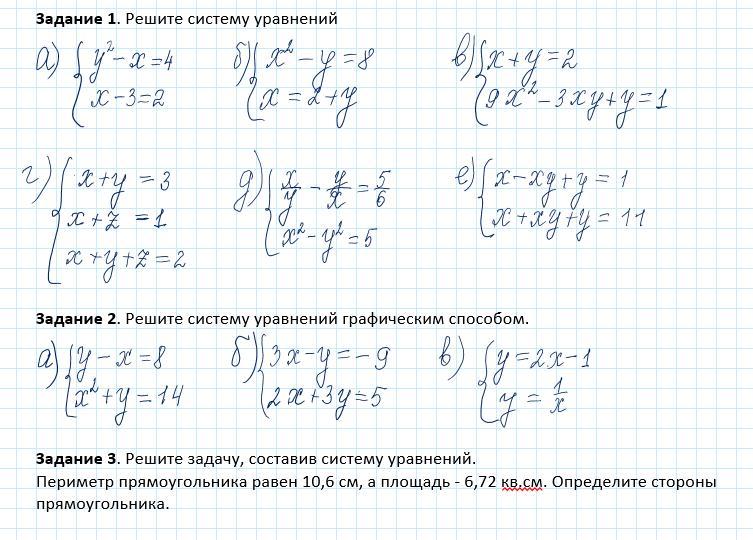 Задание 1. Решите систему уравнений
а) { y² - x = 4
x - 3 = 2
б) { x² - y = 8
x = 2 + y
в) { x + y = 2
9x² - 3xy + y = 1
г) { x + y = 3
x + z = 1
x + y + z = 2
д) { x/y - y/x = 5/6
x² - y² = 5
е) { x - xy + y = 1
x + xy + y = 11
Задание 2. Решите систему уравнений графическим способом.
а) { y - x = 8
x² + y = 14
б) { 3x - y = -9
2x + 3y = 5
в) { y = 2x - 1
y = 1/x
Задание 3. Решите задачу, составив систему уравнений.
Периметр прямоугольника равен 10,6 см, а площадь - 6,72 кв.см. Определите стороны
прямоугольника.